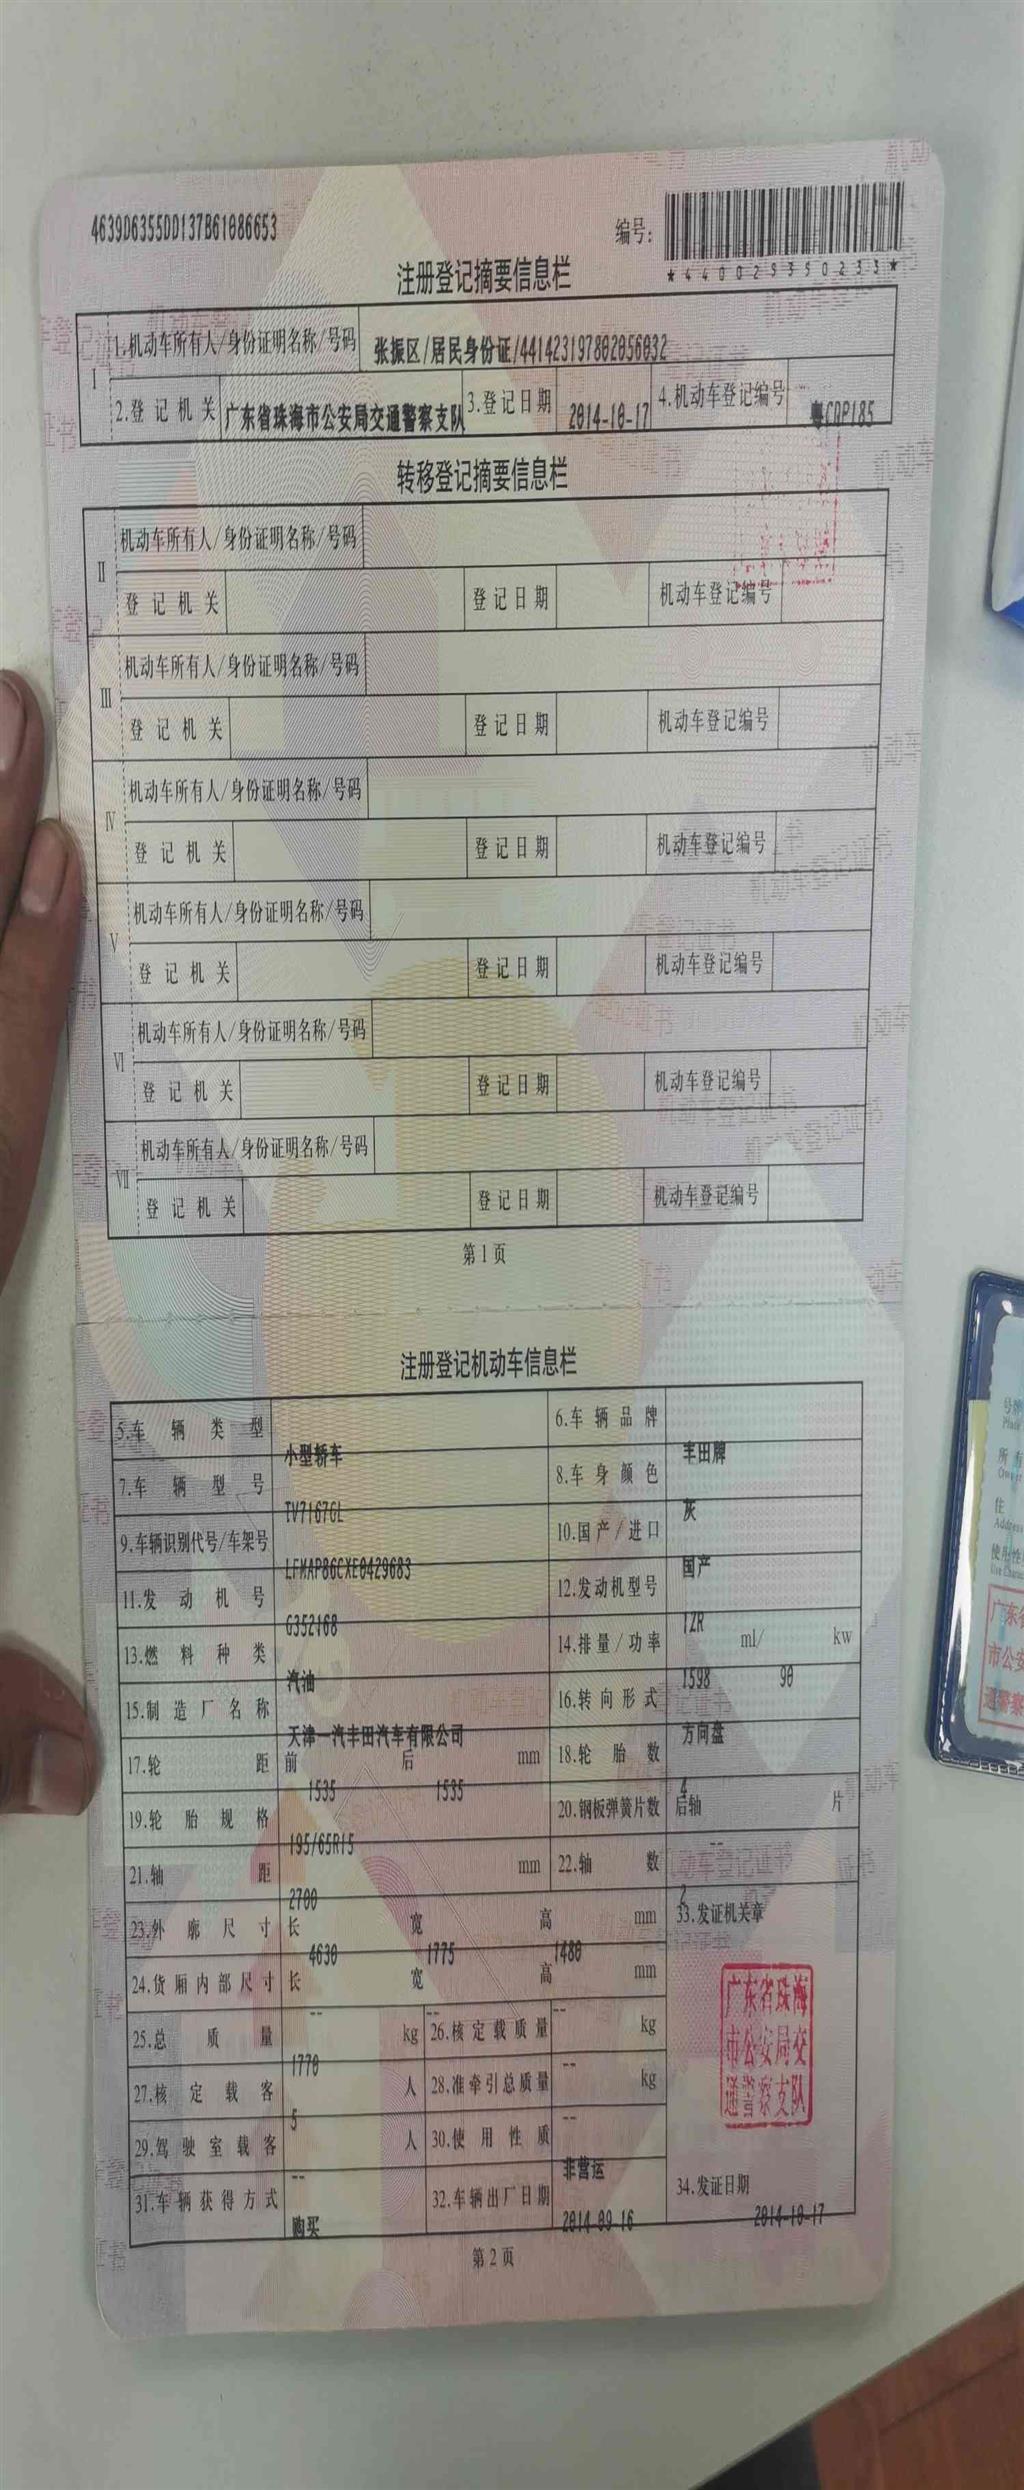 4639D6355DD137B61086653
编号:
*440029350233*
注册登记摘要信息栏
I
1.机动车所有人/身份证明名称/号码 张振区/居民身份证/441423197802056032
2.登记机关 广东省珠海市公安局交通警察支队 3.登记日期 2014-10-17 4.机动车登记编号 粤CQP185
转移登记摘要信息栏
II
机动车所有人/身份证明名称/号码
登记机关 登记日期 机动车登记编号
III
机动车所有人/身份证明名称/号码
登记机关 登记日期 机动车登记编号
IV
机动车所有人/身份证明名称/号码
登记机关 登记日期 机动车登记编号
V
机动车所有人/身份证明名称/号码
登记机关 登记日期 机动车登记编号
VI
机动车所有人/身份证明名称/号码
登记机关 登记日期 机动车登记编号
VII
机动车所有人/身份证明名称/号码
登记机关 登记日期 机动车登记编号
第1页
注册登记机动车信息栏
5.车辆类型 小型轿车 6.车辆品牌 丰田牌
7.车辆型号 TV7167GL 8.车身颜色 灰
9.车辆识别代号/车架号 LFMAP86CXE0429683 10.国产/进口 国产
11.发动机号 G352168 12.发动机型号 1ZR
13.燃料种类 汽油 14.排量/功率 1598 ml/ 90 kw
15.制造厂名称 天津一汽丰田汽车有限公司 16.转向形式 方向盘
17.轮距 前 1535 后 1535 mm 18.轮胎数 4
19.轮胎规格 195/65R15 20.钢板弹簧片数 后轴 -- 片
21.轴距 2700 mm 22.轴数 2
23.外廓尺寸 长 4630 宽 1775 高 1480 mm 33.发证机关章
24.货厢内部尺寸 长 -- 宽 -- 高 -- mm
25.总质量 1770 kg 26.核定载质量 -- kg
27.核定载客 5 人 28.准牵引总质量 -- kg
29.驾驶室载客 -- 人 30.使用性质 非营运
31.车辆获得方式 购买 32.车辆出厂日期 2014-09-16 34.发证日期 2014-10-17
广东省珠海
市公安局交
通警察支队
第2页
号牌
Plate
所有
住
Address
使用性
Use Charac
广东省
市公安
通警察